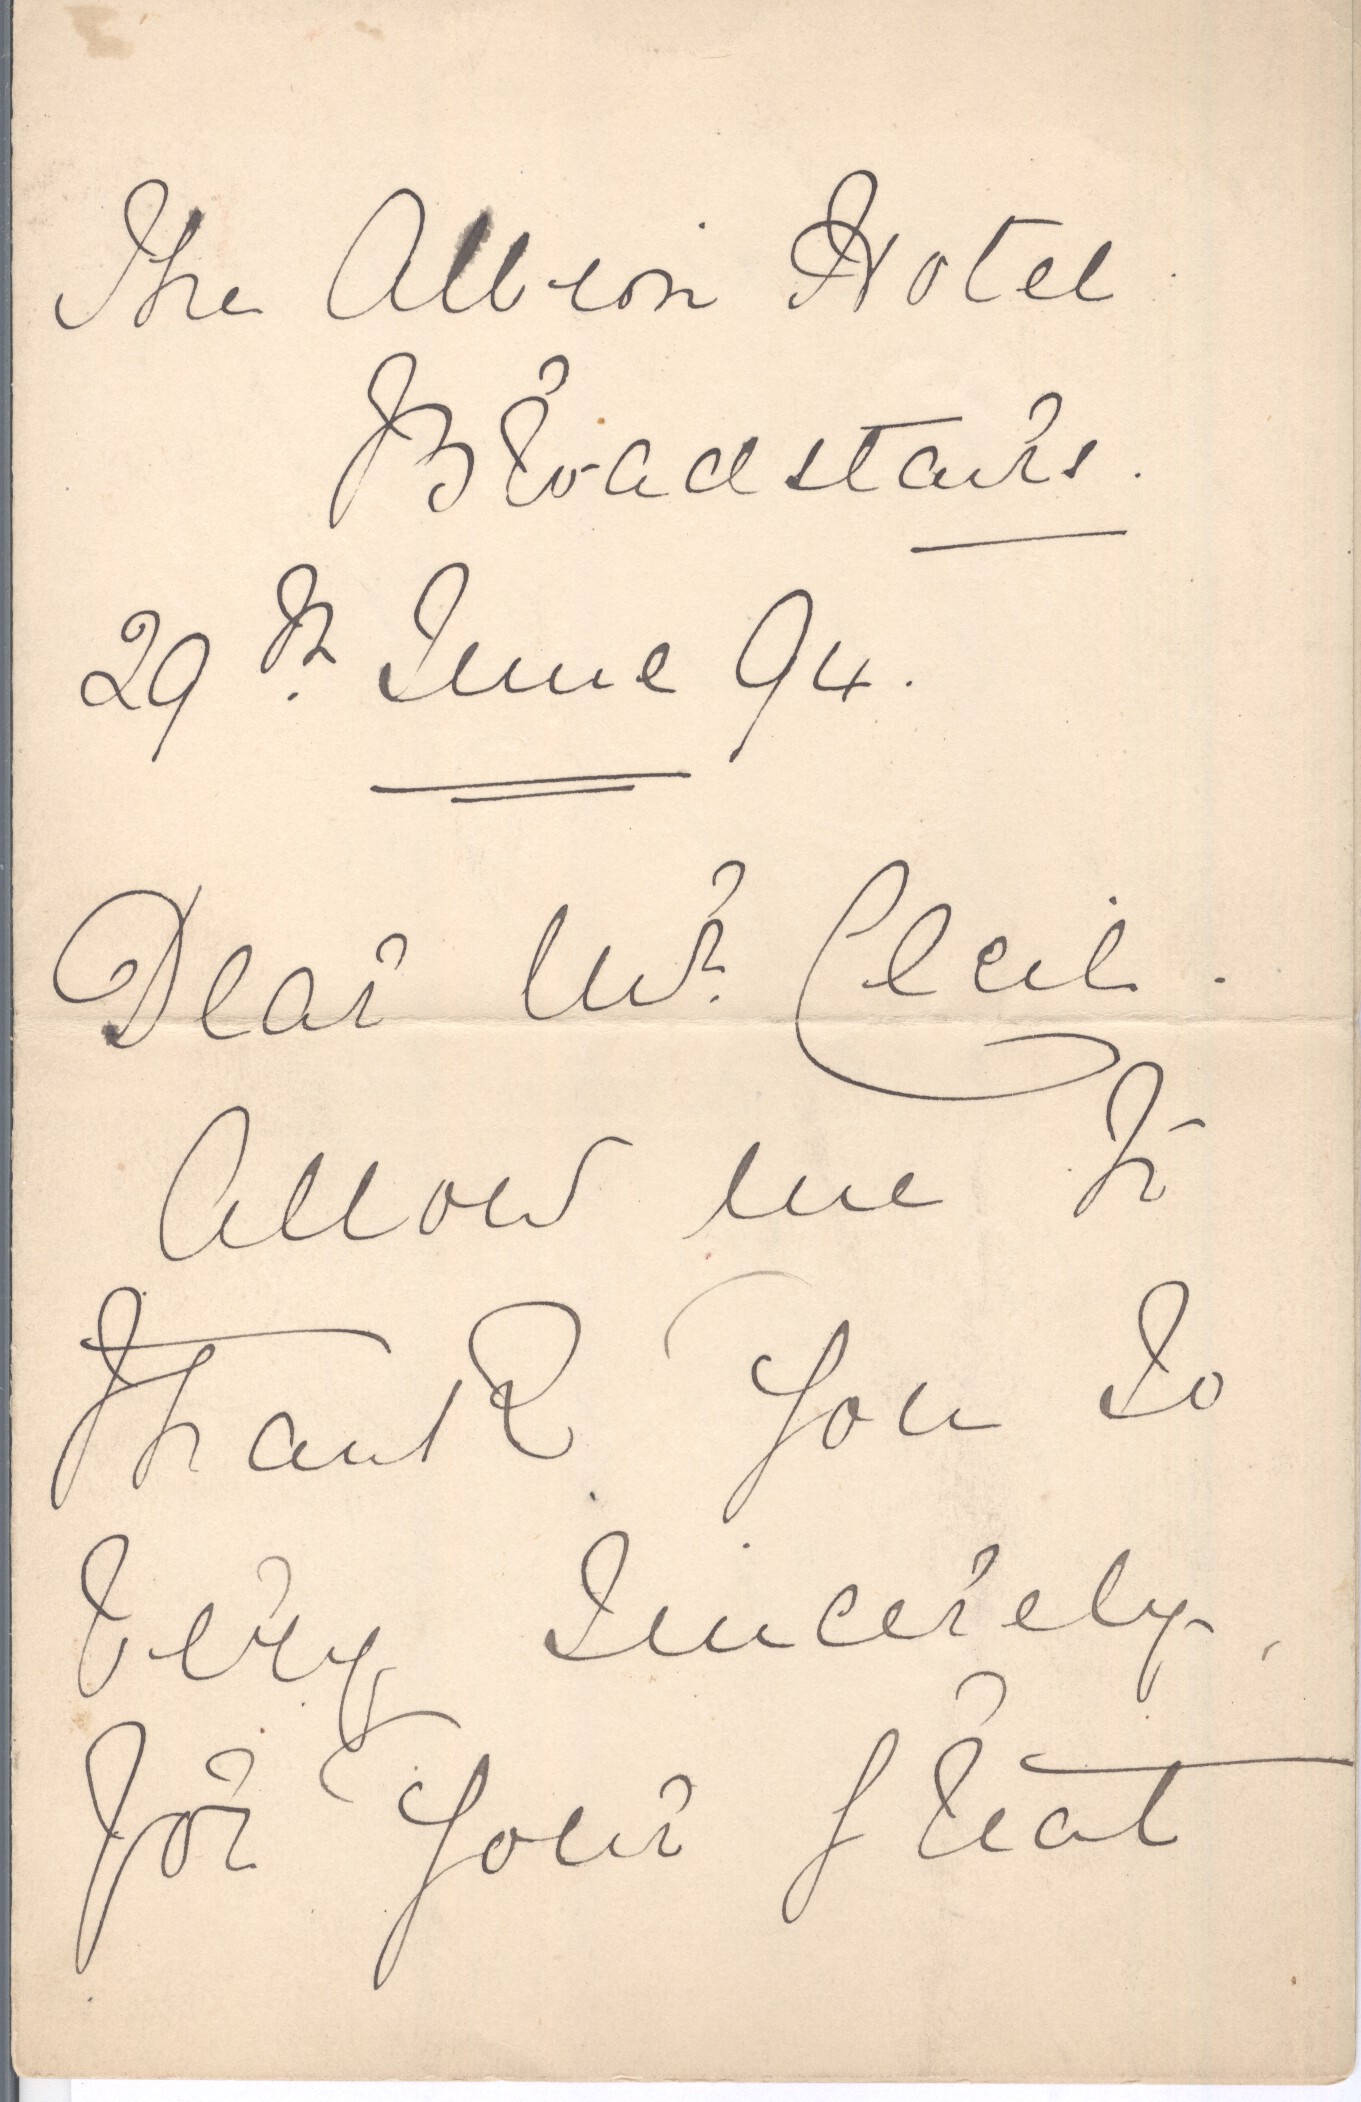 The Albion Hotel
Broadstairs.
29th. June 94.
Dear Mr. Cecil.
Allow me to
Thank you so
very sincerely,
for your great